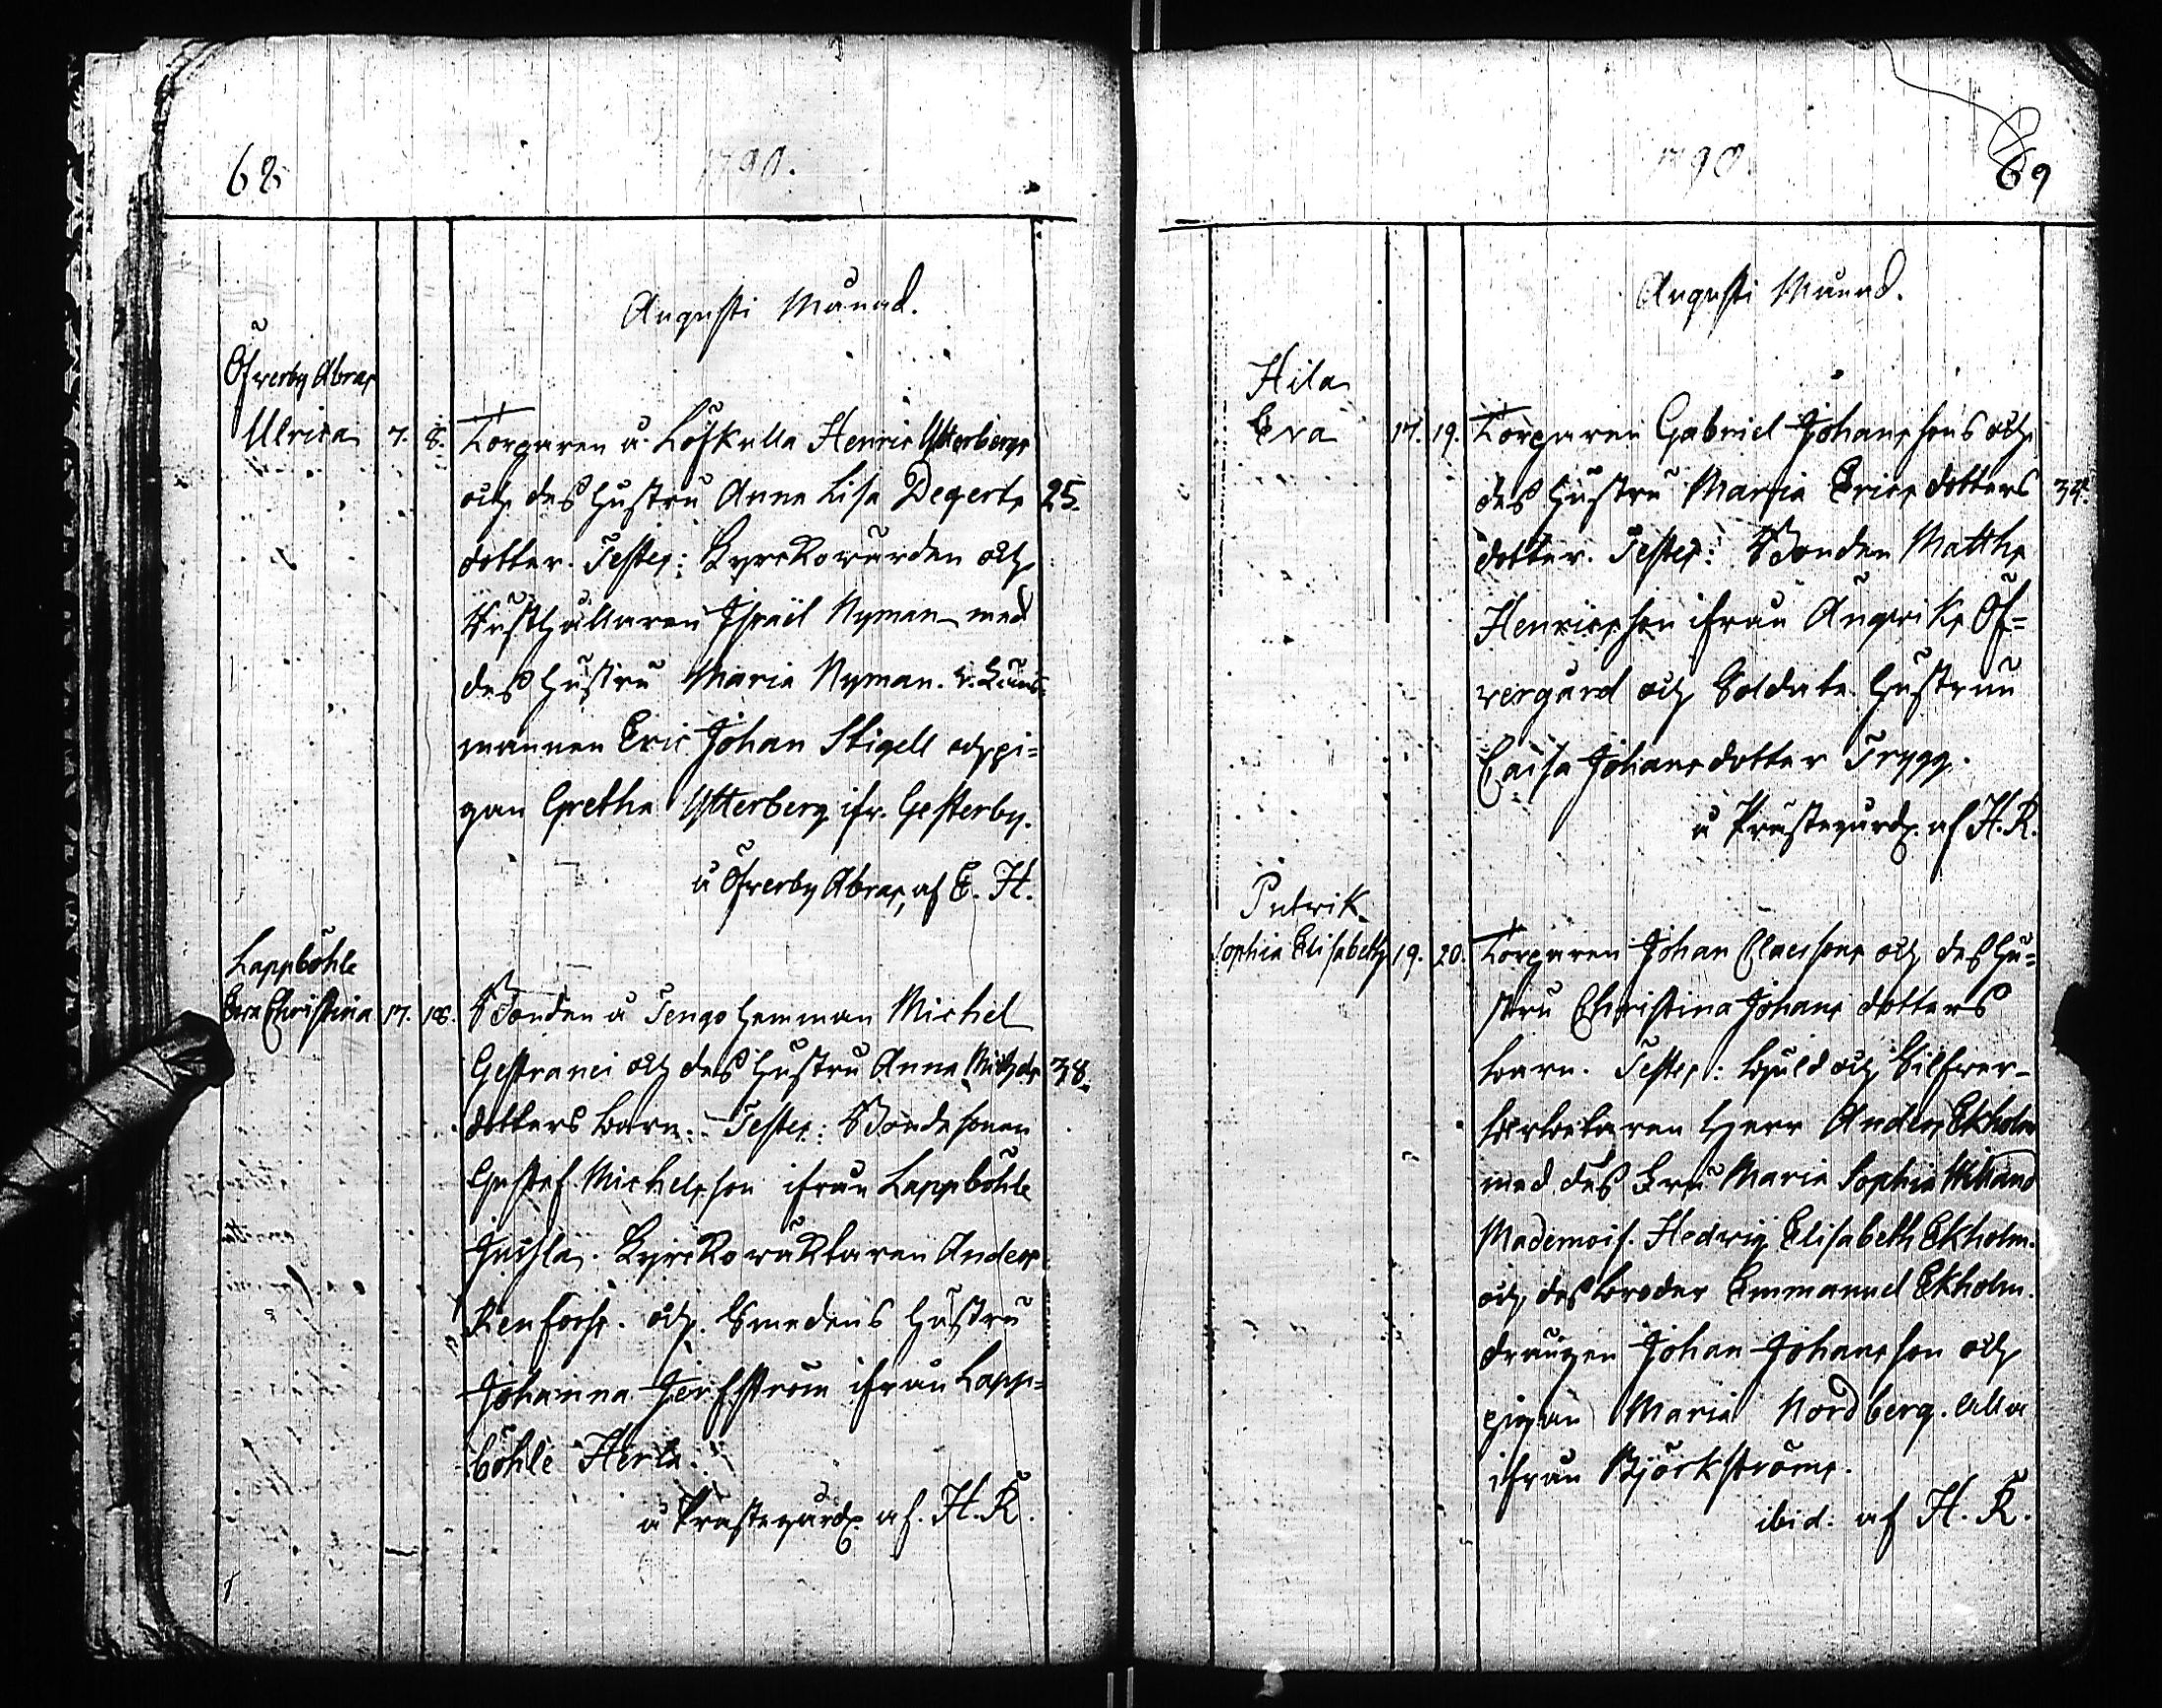 68
1790.
Augusti Månad.
Öfwerby Abras
Ulrica 7. 8. Torparen å Löfkulla Henric Ytterbergs
och des hustru Anna Lisa Degerts 25.
dotter. Testes: Kyrckowärden och
Rusthållaren Israël Nyman med
des hustru Maria Nyman. v. Läns-
mannen Eric Johan Stigell och pi-
gan Gretha Ytterberg ifr. Gesterby.
å Öfwerby Abras, af E. H.
Lappböhle
Eva Christina 17. 18. Bonden å Jengs hemman Michel
Gestranci och des hustru Anna Michels 38.
dotters barn. Testes: Bondesonen
Gustaf Michelsson ifrån Lappböhle
Jussla. Kyrckowäktaren Anders
Renfors. och Smedens hustru
Johanna Jerfström ifrån Lapp-
böhle Herla.
å Prästegård af. H. R.
69
1790.
Augusti Månad.
Hila
Eva 17. 19. Torparen Gabriel Johanssons och
des hustru Maria Erics dotters 34.
dotter. Testes: Bonden Matths
Henricsson ifrån Ängviks Öf-
wergård och Soldats hustrun
Caisa Johans dotter Trygg.
å Prästegård af H. R.
Putwik
Sophia Elisabeth 19. 20. Torparen Johan Claessons och des hu-
stru Christina Johans dotters
barn. Testes: Guld och Silfwer-
arbetaren Herr Anders Ekholm
med des Fru Maria Sophia Willand
Mademois. Hedwig Elisabeth Ekholm.
och des broder Emmanuel Ekholm.
drängen Johan Johansson och
pigan Maria Nordberg. alla
ifrån Björkströms.
ibid. af H. R.